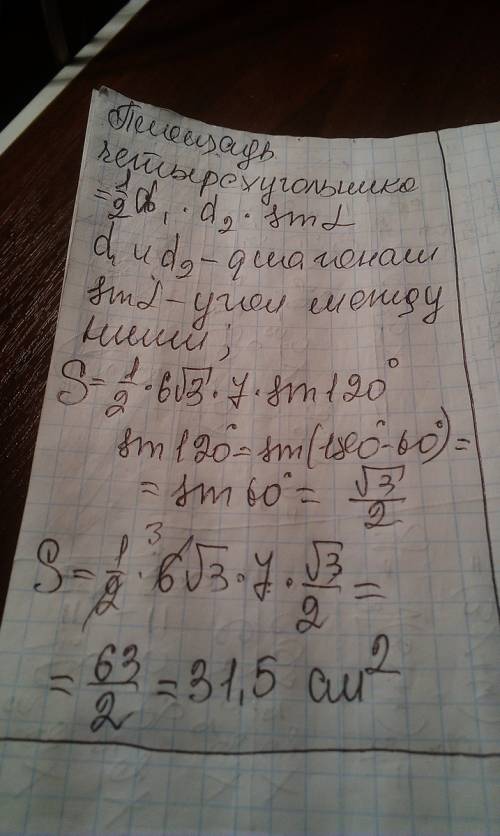 Площадь
четырехугольника
= 1/2 d₁ · d₂ · sin α
d₁ и d₂ - диагонали
sin α - угол между
ними;
S = 1/2 · 6√3 · 7 · sin 120°
sin 120° = sin(180° - 60°) =
= sin 60° = √3/2
S = 1/2 · 6√3 · 7 · √3/2 =
3
= 63/2 = 31,5 см²